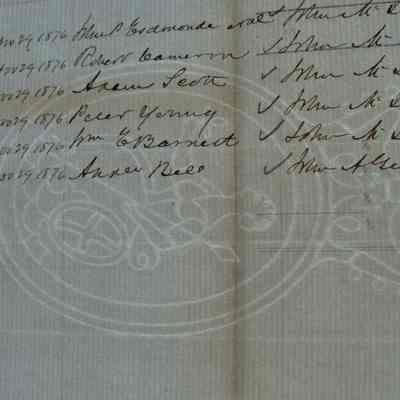 29 1876 John P Esdmonde John Mc
29 1876 Robert Cameron John Mc
29 1876 Adam Scott John Mc
29 1876 Peter Young John Mc
29 1876 Wm E Barnett John Mc
29 1876 Andrew Bell John